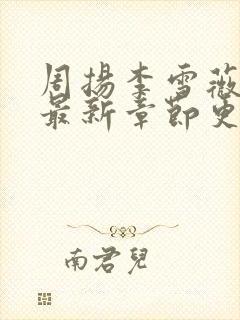 周揚李雪薇
最新章節更
南君兒